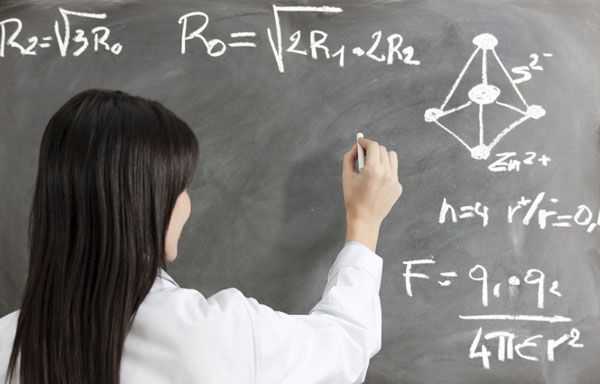 R₂=√3R₀
R₀=√2R₁·2R₂
S²⁻
Zn²⁺
n=4 r⁺/r⁻=0,
F = q₁·q₂
4πεr²